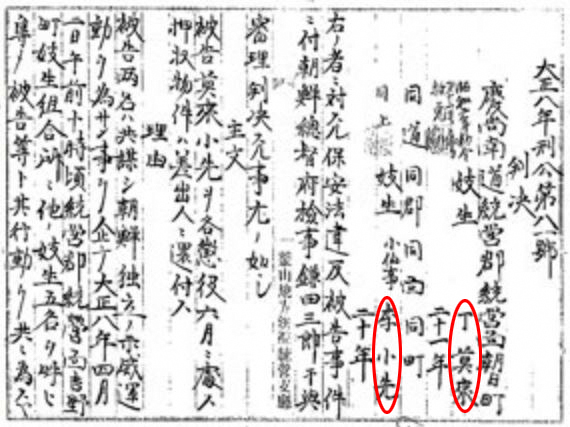 大正八年刑公第八一號
判决
慶尚南道統營郡統營面朝日町
妓生 丁莫來
二十一年
同道同郡同面同町
同上 妓生 小仙事 李小先
二十年
右ノ者ニ対スル保安法違反被告事件
ニ付朝鮮總督府檢事鎌田三郎干與
審理判决スル事左ノ如シ
主文
被告莫來小先ヲ各懲役六月ニ處ス
押収物件ハ差出人ニ還付ス
理由
被告両名ハ共謀シ朝鮮独立ノ示威運
動ヲ為サン事ヲ企テ大正八年四月
二日午前十時頃統營郡統營面吉野
町妓生組合所ニ他ノ妓生五名ヲ呼ヒ
被告等ト共行動ヲ共ニ為スヘ